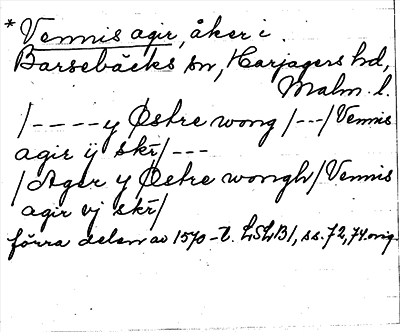 * Vennis agir, åker i
Barsebäcks sn, Harjagers hd,
Malm. l.
/ - - - - y Østre wong / - - - / Vennis
agir ij skr̄ / - - -
/ Ager y Østre wongh / Vennis
agir vj skr̄ /
förra delen av 1570-t. LSLB1, ss. 72, 74 orig.